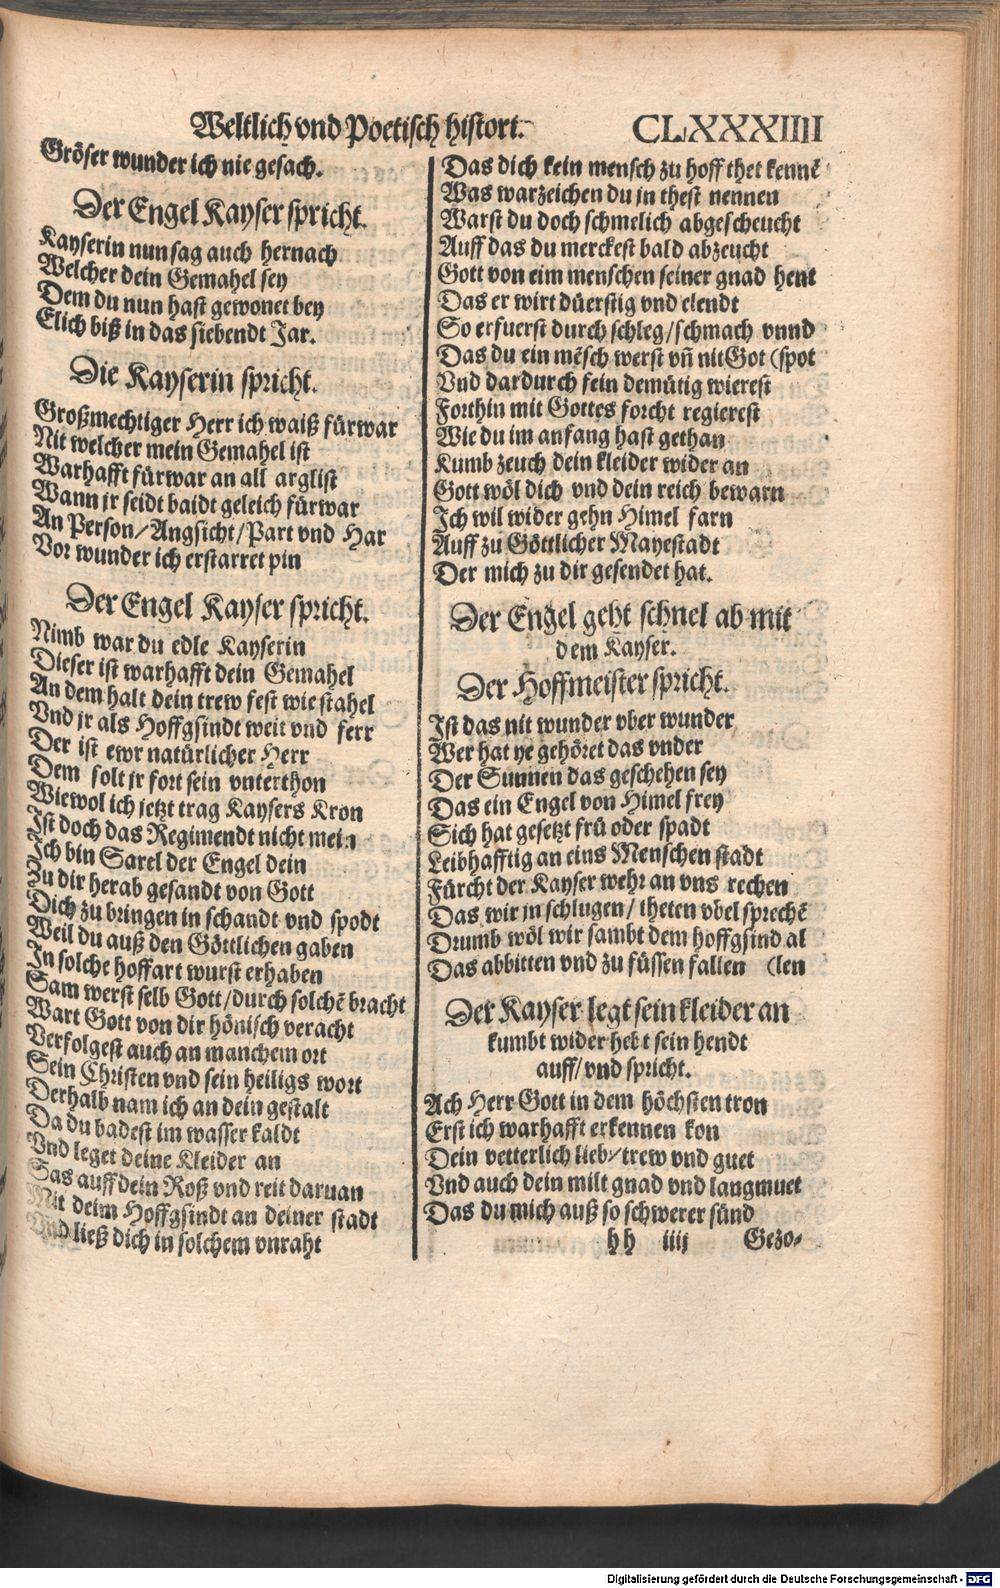 Weltlich vnd Poetisch histori.
CLXXXIIII
Gröser wunder ich nie gesach.
Der Engel Kayser spricht.
Kayserin nun sag auch hernach
Welcher dein Gemahel sey
Dem du nun hast gewonet bey
Elich biß in das siebendt Jar.
Die Kayserin spricht.
Großmechtiger Herr ich waiß fürwar
Nit welcher mein Gemahel ist
Warhafft fürwar an all arglist
Wann jr seidt baidt geleich fürwar
An Person/Angsicht/Part vnd Har
Vor wunder ich erstarret pin
Der Engel Kayser spricht.
Nimb war du edle Kayserin
Dieser ist warhafft dein Gemahel
An dem halt dein trew fest wie stahel
Vnd jr als Hoffgsindt weit vnd ferr
Der ist ewr natürlicher Herr
Dem solt jr fort sein vnterthon
Wiewol ich jetzt trag Kaysers Kron
Ist doch das Regimendt nicht mein
Ich bin Sarel der Engel dein
Zu dir herab gesandt von Gott
Dich zu bringen in schandt vnd spodt
Weil du auß den Göttlichen gaben
In solche hoffart wurst erhaben
Sam werst selb Gott/durch solchē bracht
Wart Gott von dir hönisch veracht
Verfolgest auch an manchem ort
Sein Christen vnd sein heiligs wort
Derhalb nam ich an dein gestalt
Da du badest im wasser kaldt
Vnd leget deine Kleider an
Sas auff dein Roß vnd reit daruan
Mit deim Hoffgsindt an deiner stadt
Vnd ließ dich in solchem vnraht
Das dich kein mensch zu hoff thet kennē
Was warzeichen du jn thest nennen
Warst du doch schmelich abgescheucht
Auff das du merckest bald abzeucht
Gott von eim menschen seiner gnad hent
Das er wirt düerstig vnd elendt
So erfuerst durch schleg/schmach vnnd
Das du ein mēsch werst vñ nit Got (spot
Vnd dardurch fein demütig wierest
Forthin mit Gottes forcht regierest
Wie du im anfang hast gethan
Kumb zeuch dein kleider wider an
Gott wöl dich vnd dein reich bewarn
Ich wil wider gehn Himel farn
Auff zu Göttlicher Mayestadt
Der mich zu dir gesendet hat.
Der Engel geht schnel ab mit
dem Kayser.
Der Hoffmeister spricht.
Ist das nit wunder vber wunder
Wer hat ye gehöret das vnder
Der Sunnen das geschehen sey
Das ein Engel von Himel frey
Sich hat gesetzt frü oder spadt
Leibhafftig an eins Menschen stadt
Fürcht der Kayser wehr an vns rechen
Das wir jn schlugen/theten vbel sprechē
Drumb wöl wir sambt dem hoffgsind al
Das abbitten vnd zu füssen fallen (len
Der Kayser legt sein kleider an
kumbt wider hebt sein hendt
auff/vnd spricht.
Ach Herr Gott in dem höchsten tron
Erst ich warhafft erkennen kon
Dein vetterlich lieb/trew vnd guet
Vnd auch dein milt gnad vnd langmuet
Das du mich auß so schwerer sünd
hh iiij Gezo-
Digitalisierung gefördert durch die Deutsche Forschungsgemeinschaft - DFG